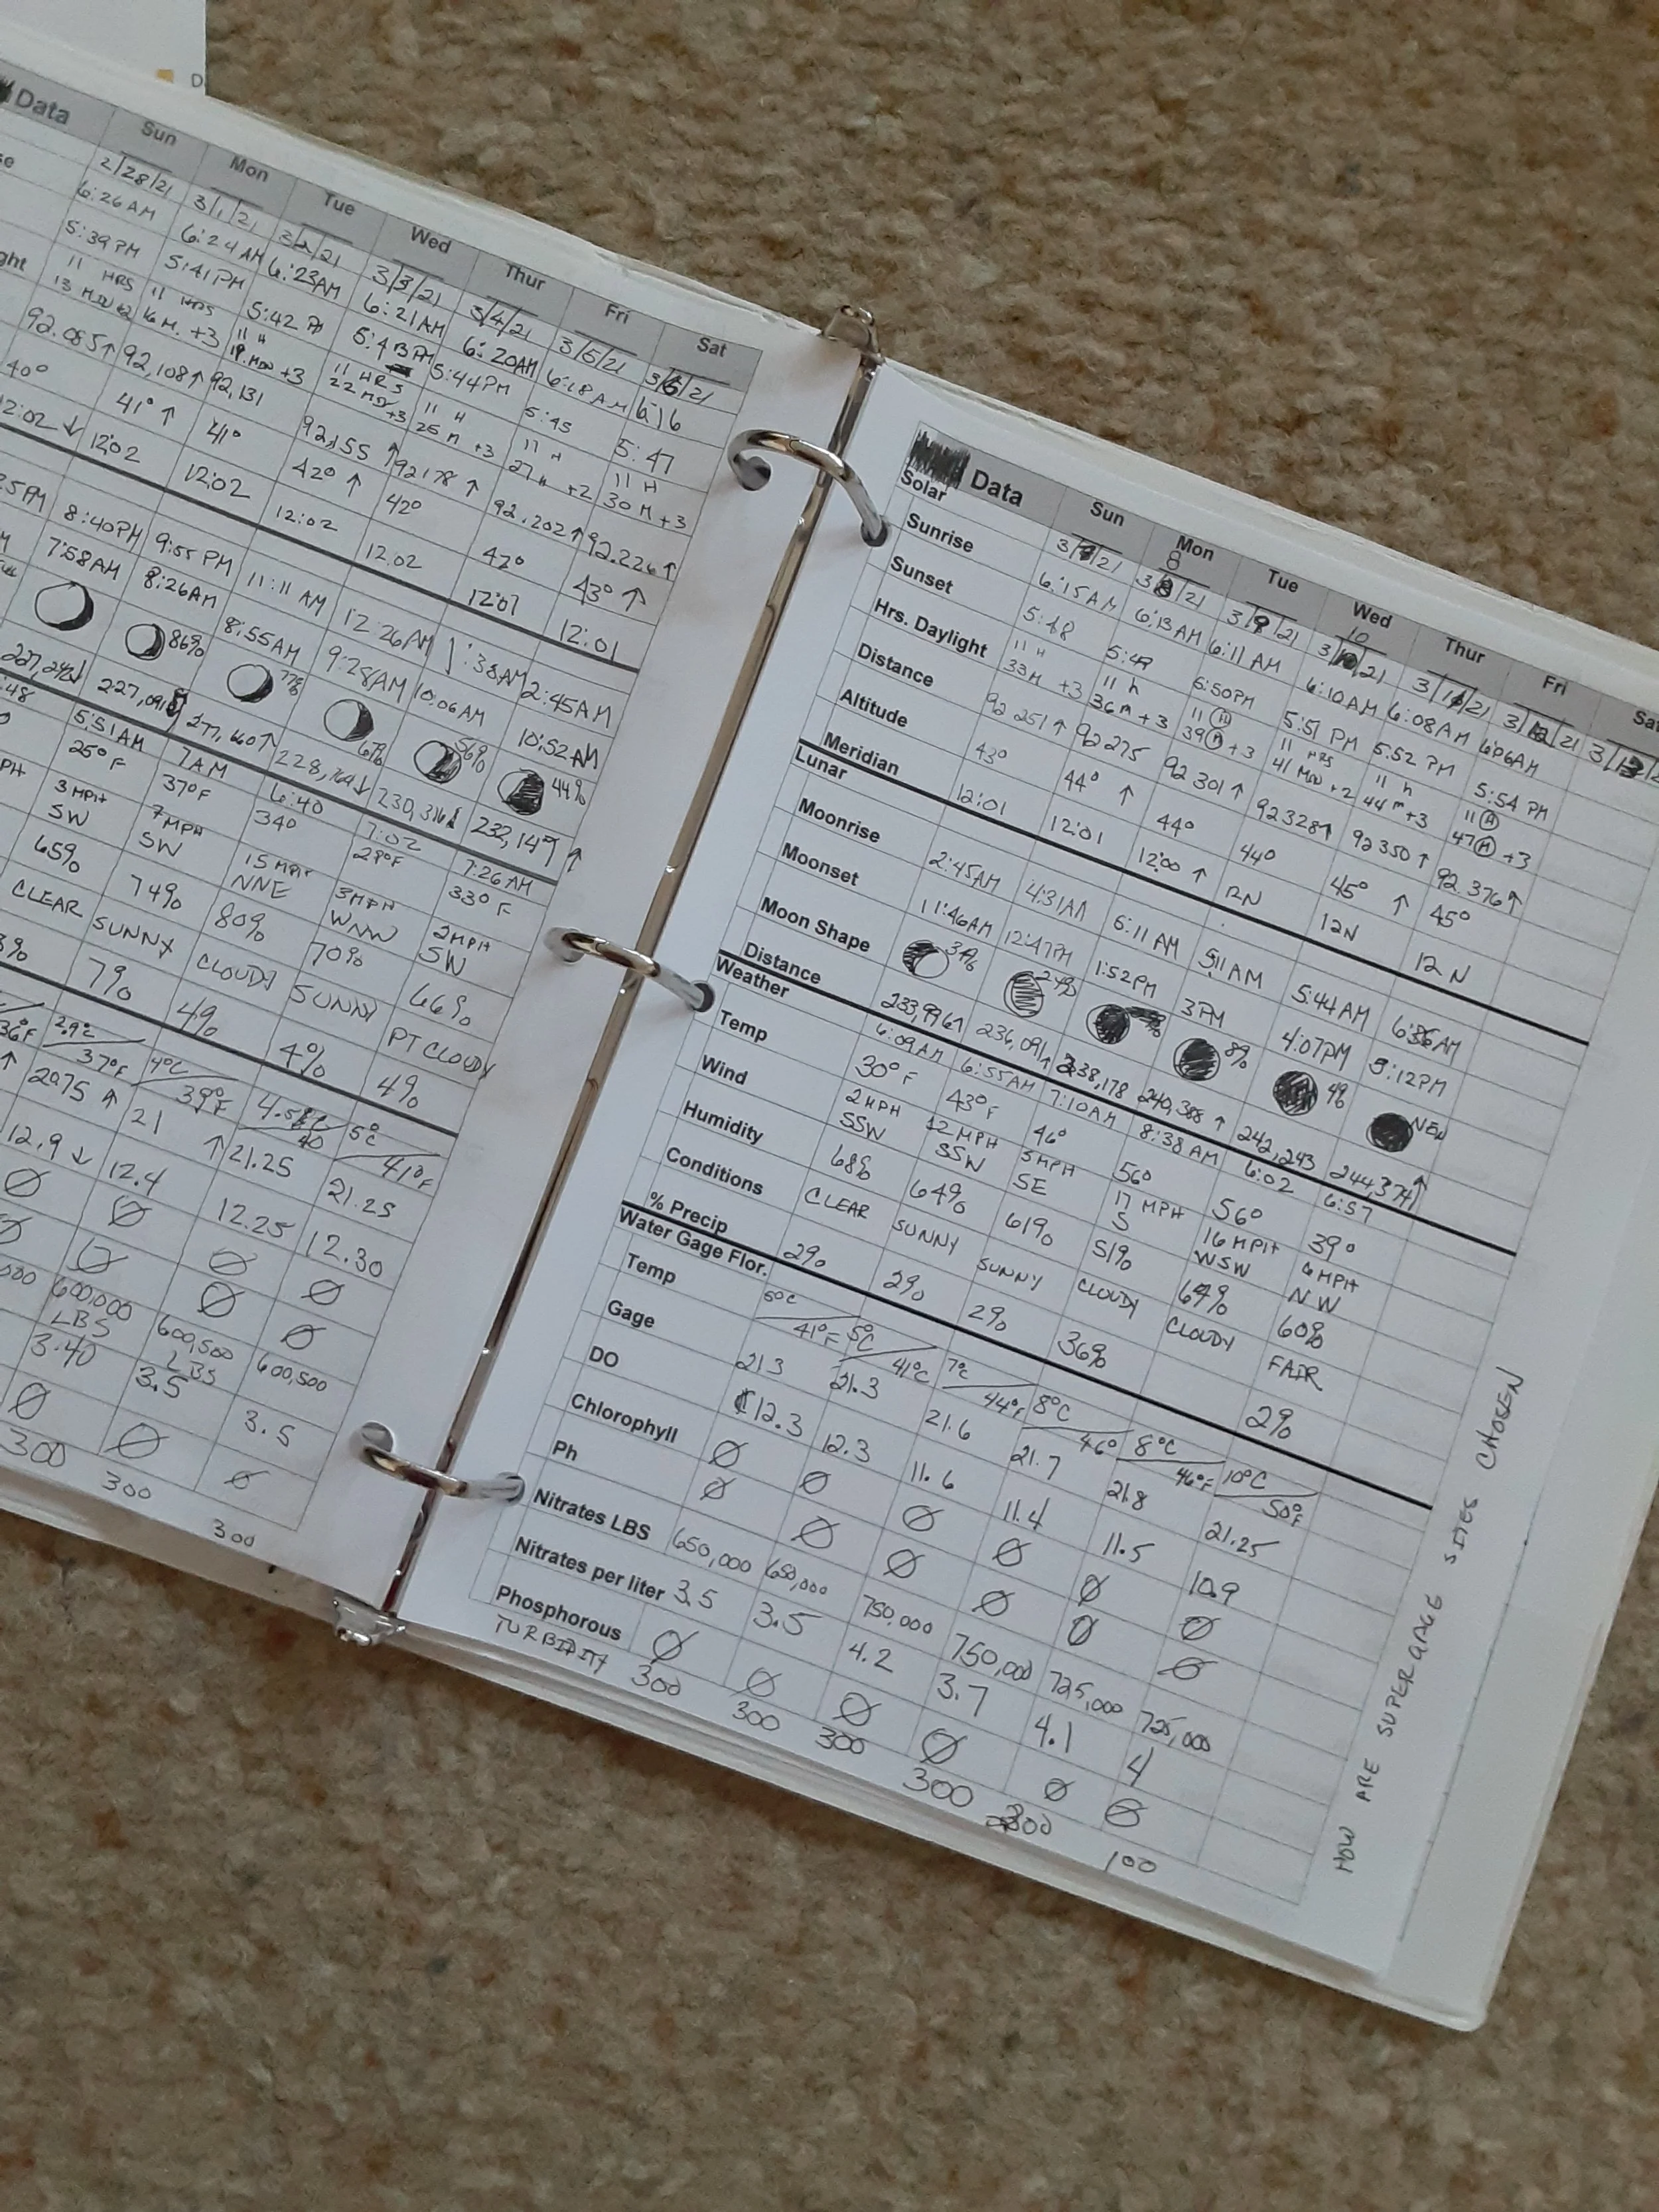 D
Data Sun Mon Tue Wed Thur Fri Sat
2/28/21 3/1/21 3/2/21 3/3/21 3/4/21 3/5/21 3/6/21
6:26 AM 6:24 AM 6:23AM 6:21AM 6:20AM 6:18AM 6:16
5:39 PM 5:41PM 5:42 5:43PM 5:44PM 5:45 5:47
ght 11 HRS 11 HRS 11 H 11 HRS 11 H 11 H 11 H
16 M. +3 19 MIN +3 22 MIN +3 25 M +3 27M +2 30 M +3
92.085↑ 92,108↑ 92,131 92,155 ↑ 92178 ↑ 92.202↑ 92.226↑
40° 41° ↑ 41° 42° ↑ 42° 42° 43° ↑
12:02 ↓ 12:02 12:02 12:02 12.02 12:01 12:01
8:40PM 9:55 PM 11:11 AM 12:26AM 1:38AM 2:45AM
7:58AM 8:26AM 8:55AM 9:28AM 10:06AM 10:52AM
86% 77% 67% 56% 44%
228,769↓ 232,147↑
:48 5:51AM 7AM 6:40 7:02 7:26AM
25°F 37°F 34° 29°F 33°F
PH 3 MPH SW 7MPH SW 15 MPH NNE 3MPH WNW 2MPH SW
65% 74% 80% 70% 66%
CLEAR SUNNY CLOUDY SUNNY PT CLOUDY
7% 4% 4% 4%
36°F 2.9°C 37°F 4°C 39°F 40 5°C 41°F
↑ 20.75 ↑ 21 ↑ 21.25 21.25
12.9 ↓ 12.4 12.25 12.30
Ø Ø Ø Ø
Ø Ø Ø Ø
000 600,000 LBS 600,500 LBS 600,500
3.40 3.5 3.5
Ø Ø Ø
300 300 300
Data Sun Mon Tue Wed Thur Fri Sat
Solar 3/7/21 3/8/21 3/9/21 3/10/21 3/11/21 3/12/21 3/13/2
Sunrise 6:15AM 6:13AM 6:11 AM 6:10AM 6:08AM 6:06AM
Sunset 5:48 5:49 5:50PM 5:51 PM 5:52 PM 5:54 PM
Hrs. Daylight 11 H 33M +3 11 h 36m +3 11 H 39 M +3 11 HRS 41 MIN +2 11 h 44m +3 11 H 47 M +3
Distance 92 251↑ 92 275 92 301 ↑ 92328↑ 92350 ↑ 92.376↑
Altitude 43° 44° ↑ 44° 44° 45° ↑ 45°
Meridian 12:01 12:01 12:00 ↑ 12N 12N 12 N
Lunar
Moonrise 2:45AM 4:31AM 6:11 AM 5:11AM 5:44AM 6:36AM
Moonset 11:46AM 12:47PM 1:52PM 3PM 4:07PM 5:12PM
Moon Shape 34% 24% 8% 4% NEW
Distance 233,996↑ 236,091↑ 238,178 240,388 ↑ 242,243 244,374↑
Weather 6:09AM 6:55AM 7:10AM 8:38 AM 6:02 6:57
Temp 30°F 43°F 46° 56° 56° 39°
Wind 2MPH SSW 12 MPH SSW 3MPH SE 17 MPH S 16 MPH WSW 6 MPH NW
Humidity 68% 64% 61% 51% 64% 60%
Conditions CLEAR SUNNY SUNNY CLOUDY CLOUDY FAIR
% Precip 2% 2% 2% 36% 2%
Water Gage Flor.
Temp 41°F 5°C 41°C 7°C 44°F 8°C 46° 8°C 46°F 10°C 50°F
Gage 21.3 21.3 21.6 21.7 21.8 21.25
DO 12.3 12.3 11.6 11.4 11.5 10.9
Chlorophyll Ø Ø Ø Ø Ø Ø
Ph Ø Ø Ø Ø Ø Ø
Nitrates LBS 650,000 650,000 750,000 750,000 725,000 725,000
Nitrates per liter 3.5 3.5 4.2 3.7 4.1 4
Phosphorous Ø Ø Ø Ø Ø Ø
TURBIDITY 300 300 300 300 300 100
HOW ARE SUPER GAGE SITES CHOSEN